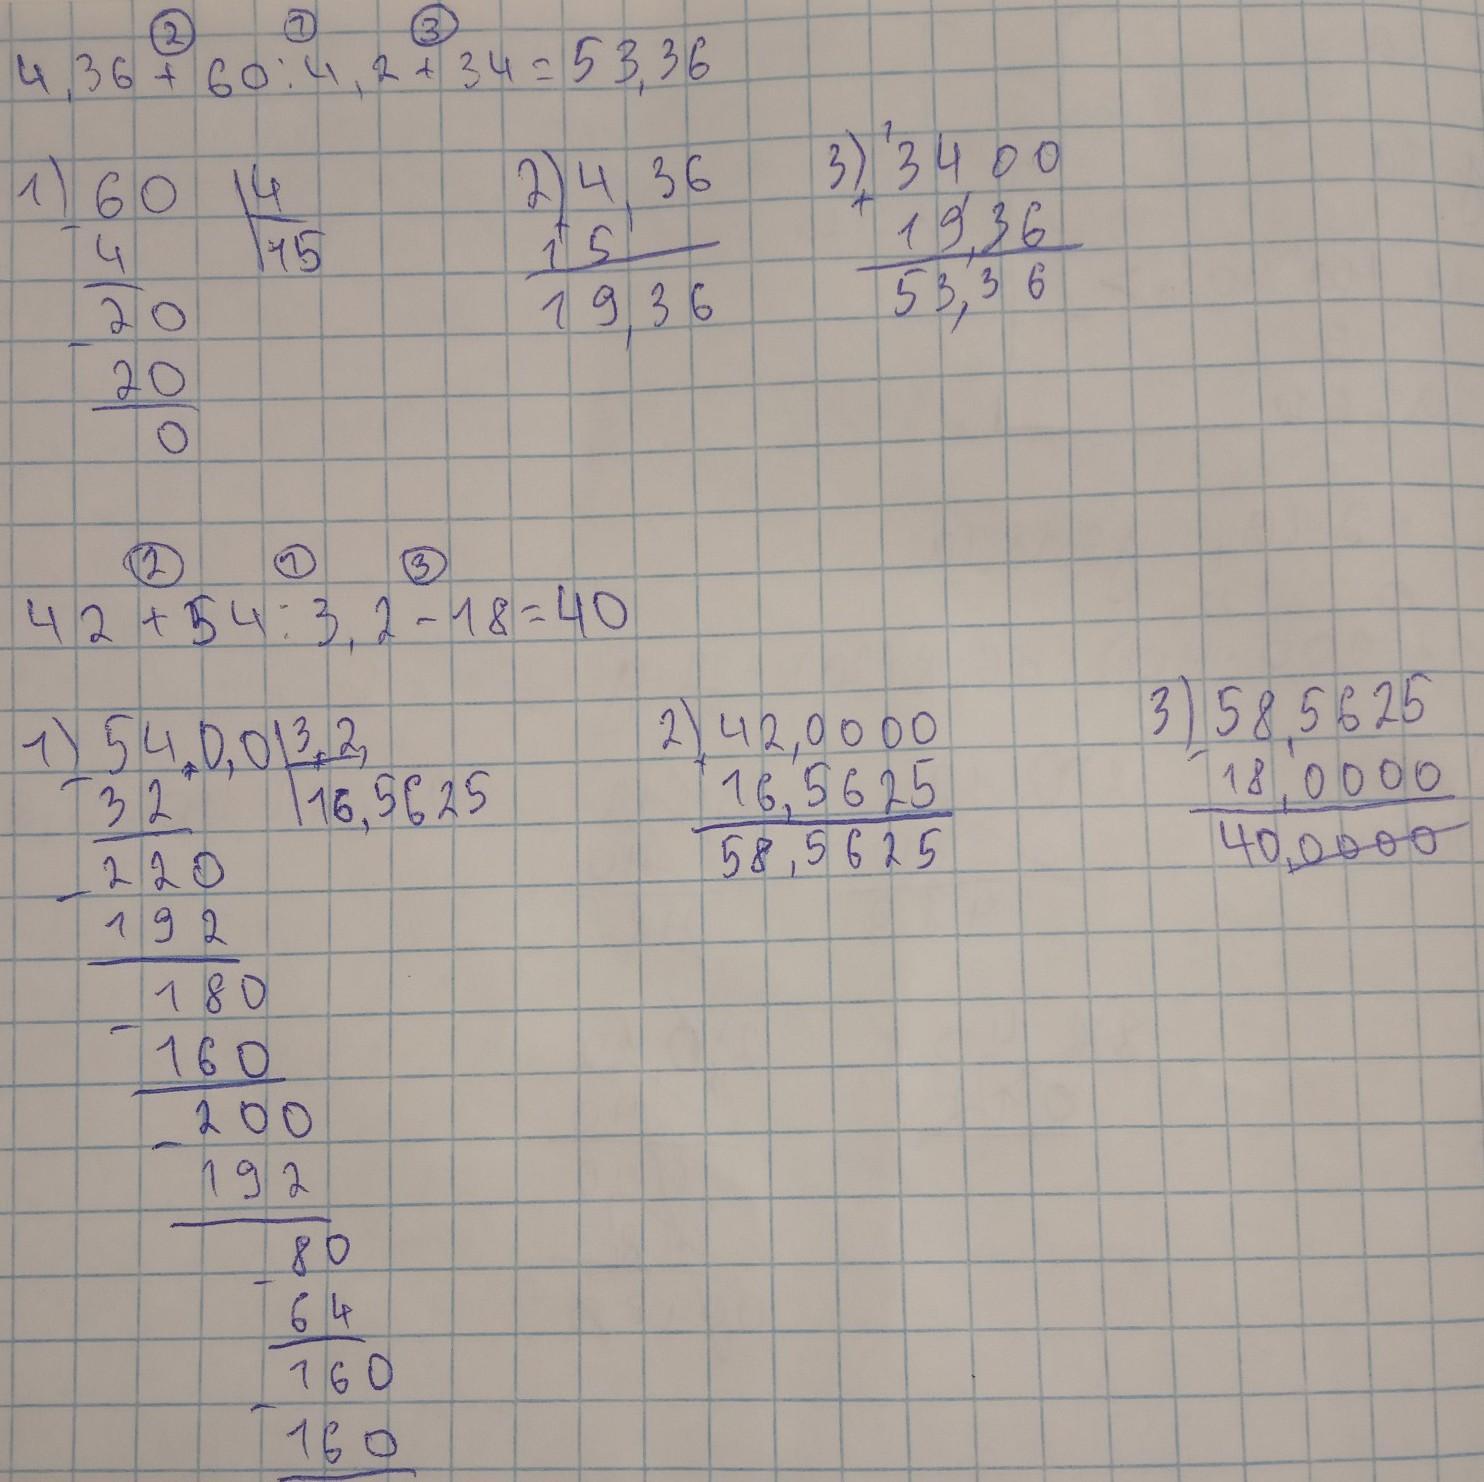 ② ① ③
4,36 + 60 : 4,2 + 34 = 53,36
1) 60 4
4 15
20
20
0
2) 4,36
+ 15
19,36
3) 1
3400
+ 19,36
53,36
② ① ③
42 + 54 : 3,2 - 18 = 40
1) 54,0,0 3,2,
- 32 16,5625
220
- 192
180
- 160
200
- 192
80
- 64
160
- 160
2) 42,0000
+ 16,5625
58,5625
3) 58,5625
- 18,0000
40,0000